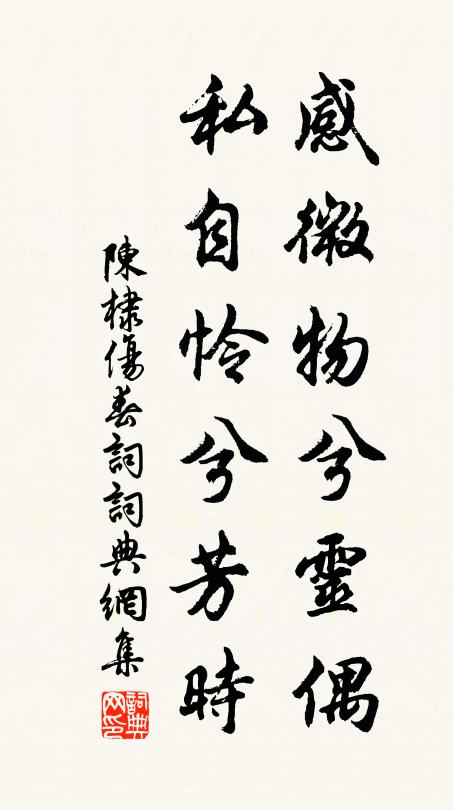 感微物兮靈偶
私自怜兮芳時
陳棣傷春詞詞典網集
詞典网印